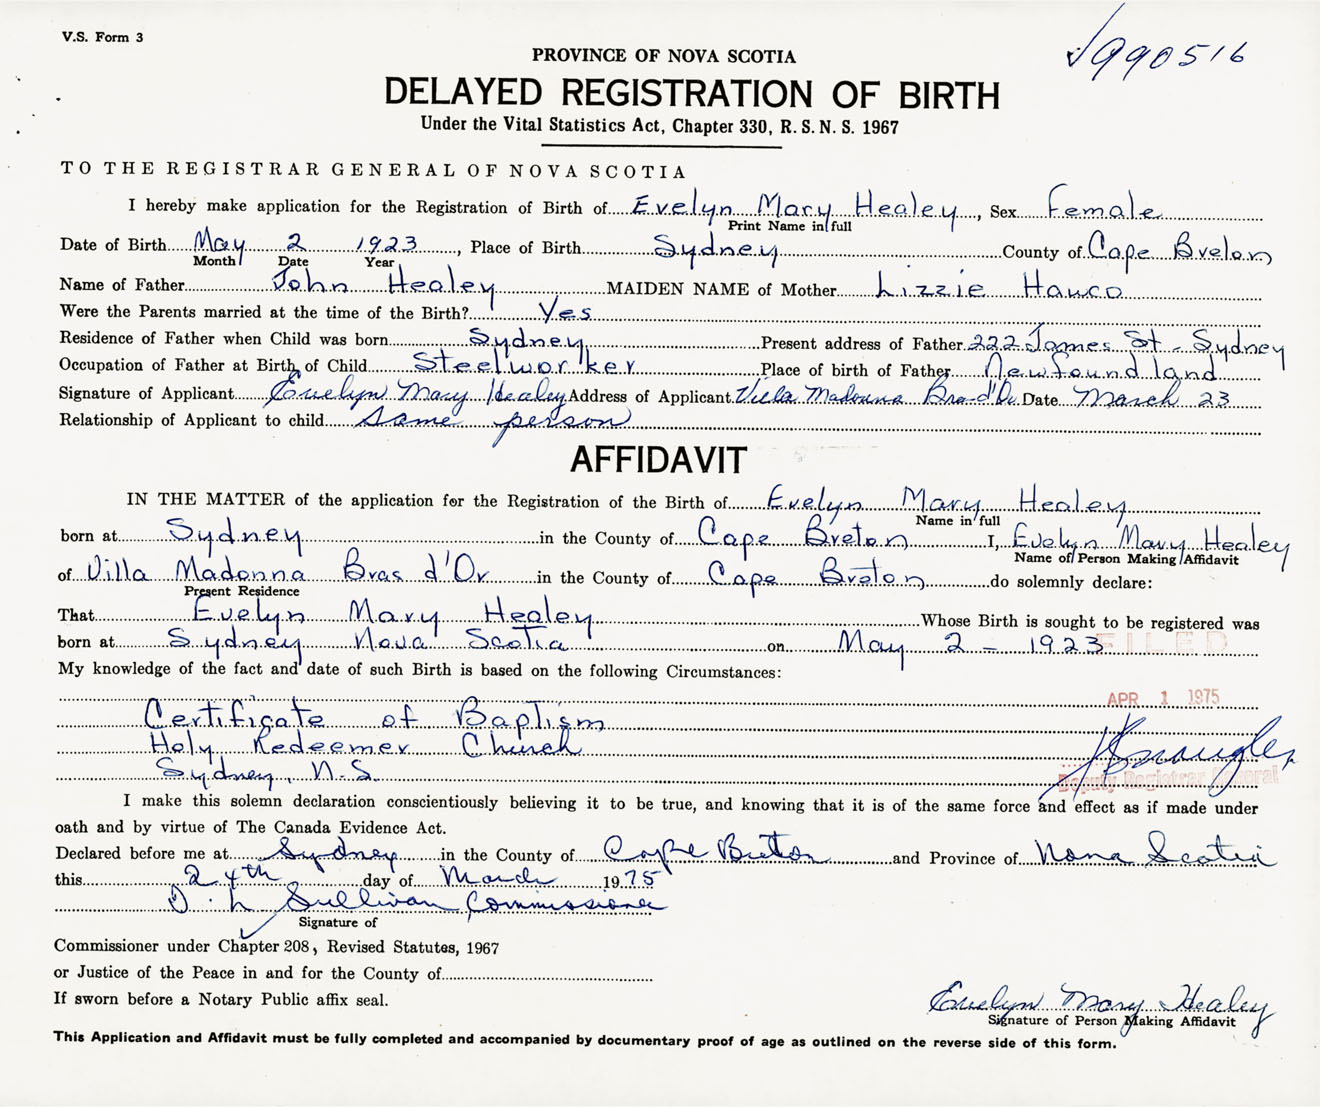 V.S. Form 3
990516
PROVINCE OF NOVA SCOTIA
DELAYED REGISTRATION OF BIRTH
Under the Vital Statistics Act, Chapter 330, R. S. N. S. 1967
TO THE REGISTRAR GENERAL OF NOVA SCOTIA
I hereby make application for the Registration of Birth of Evelyn Mary Healey, Sex Female
Print Name in full
Date of Birth May 2 1923, Place of Birth Sydney County of Cape Breton
Month Date Year
Name of Father John Healey MAIDEN NAME of Mother Lizzie Hawco
Were the Parents married at the time of the Birth? Yes
Residence of Father when Child was born Sydney Present address of Father 222 James St - Sydney
Occupation of Father at Birth of Child Steelworker Place of birth of Father Newfoundland
Signature of Applicant Evelyn Mary Healey Address of Applicant Villa Madonna Bras d'Or Date March 23
Relationship of Applicant to child same person
AFFIDAVIT
IN THE MATTER of the application for the Registration of the Birth of Evelyn Mary Healey
Name in full
born at Sydney in the County of Cape Breton I, Evelyn Mary Healey
Name of Person Making Affidavit
of Villa Madonna Bras d'Or in the County of Cape Breton do solemnly declare:
Present Residence
That Evelyn Mary Healey Whose Birth is sought to be registered was
born at Sydney Nova Scotia on May 2 - 1923
FILED
My knowledge of the fact and date of such Birth is based on the following Circumstances:
APR 1 1975
Certificate of Baptism
Holy Redeemer Church
Sydney, N.S.
Deputy Registrar General
I make this solemn declaration conscientiously believing it to be true, and knowing that it is of the same force and effect as if made under
oath and by virtue of The Canada Evidence Act.
Declared before me at Sydney in the County of Cape Breton and Province of Nova Scotia
this 24th day of March 1975
D. L Sullivan Commissioner
Signature of
Commissioner under Chapter 208, Revised Statutes, 1967
or Justice of the Peace in and for the County of
If sworn before a Notary Public affix seal.
Evelyn Mary Healey
Signature of Person Making Affidavit
This Application and Affidavit must be fully completed and accompanied by documentary proof of age as outlined on the reverse side of this form.